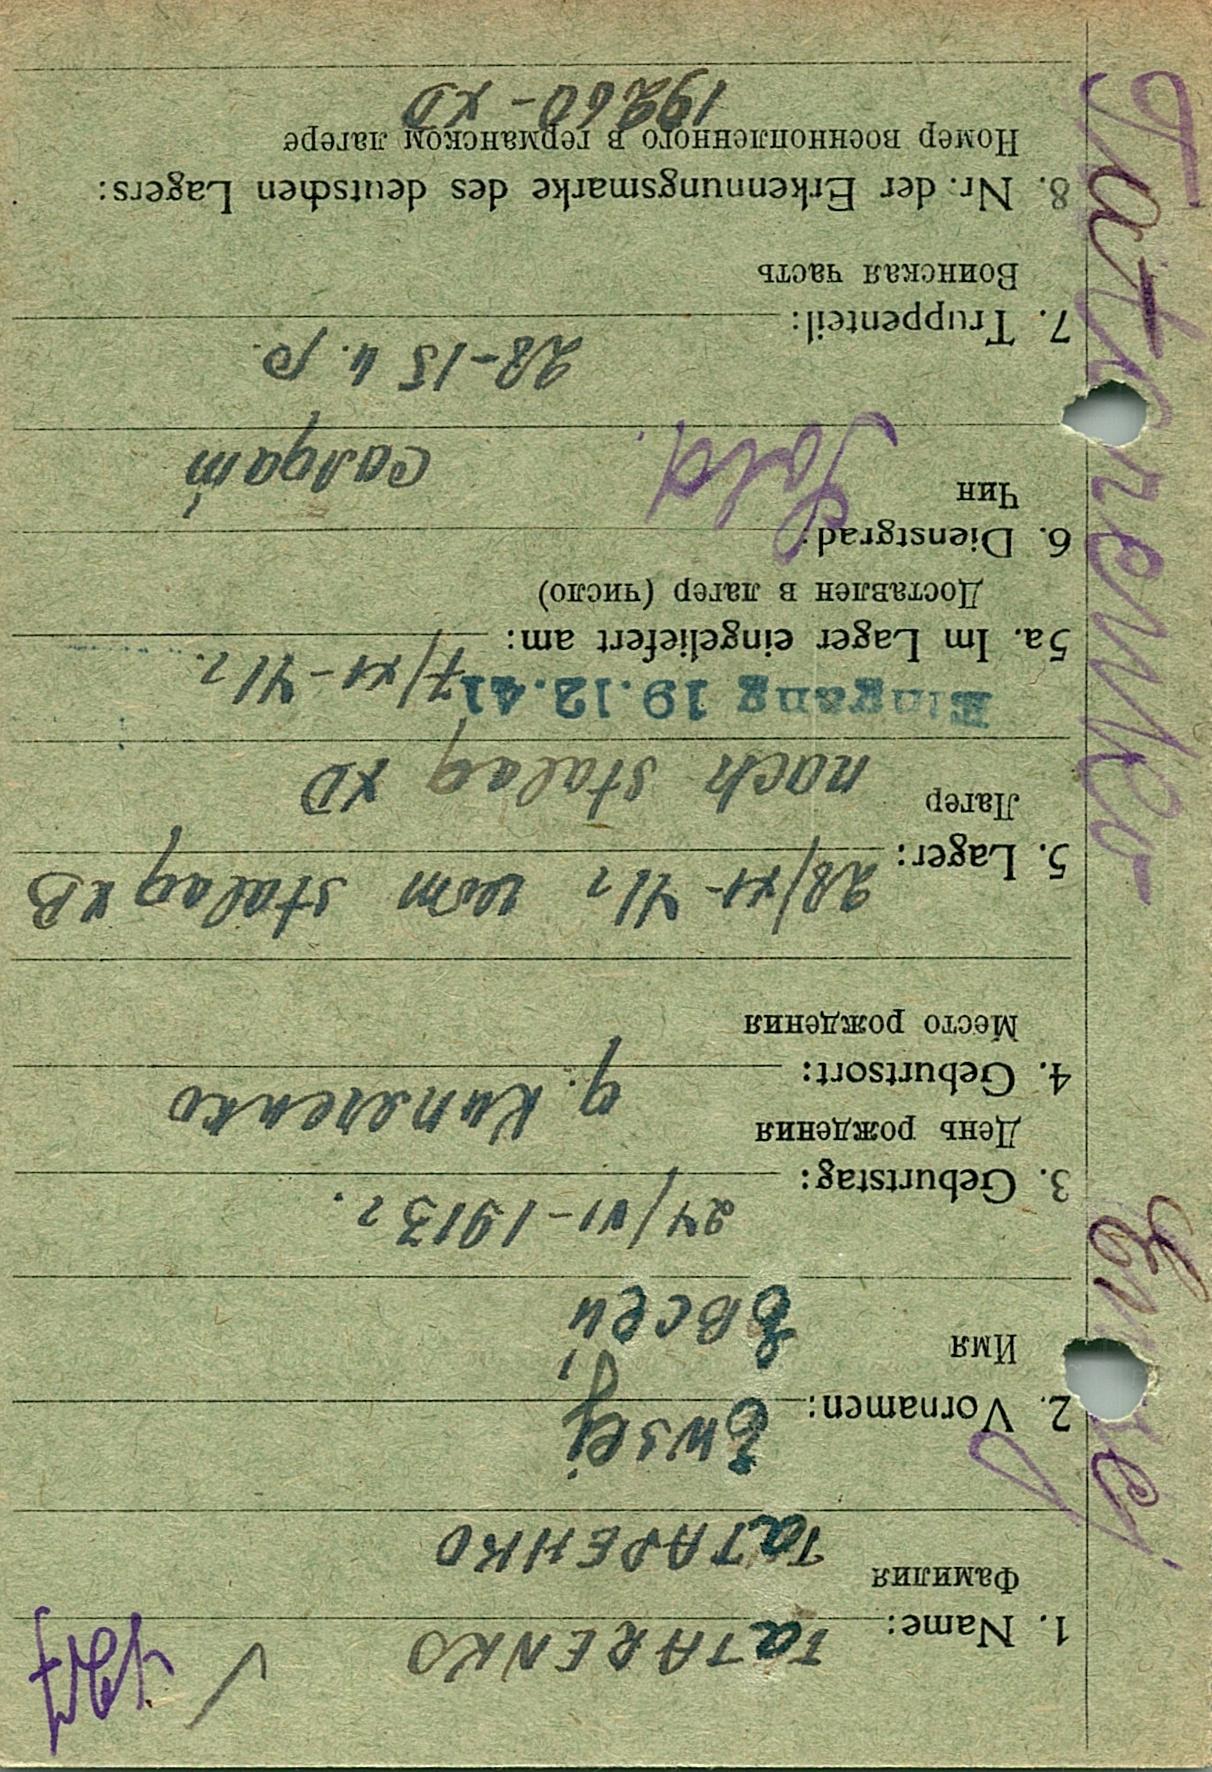 1. Name: TATARENKO
Фамилия ТАТАРЕНКО
2. Vornamen: Ewsej,
Имя Евсей
3. Geburtstag: 24/VI-1913 г.
День рождения
4. Geburtsort: д.
Место рождения
28/XI-41 г vom stalag XB
5. Lager:
Лагер nach stalag XD
Eingang 19.12.41 7/XI-41 г.
5a. Im Lager eingeliefert am:
Доставлен в лагер (число)
6. Dienstgrad: Sold.
Чин салдат
28-15 и.р.
7. Truppenteil:
Воинская часть
8. Nr. der Erkennungsmarke des deutschen Lagers:
Номер военнопленного в германском лагере
19260-XD
Tatarenko Ewsej